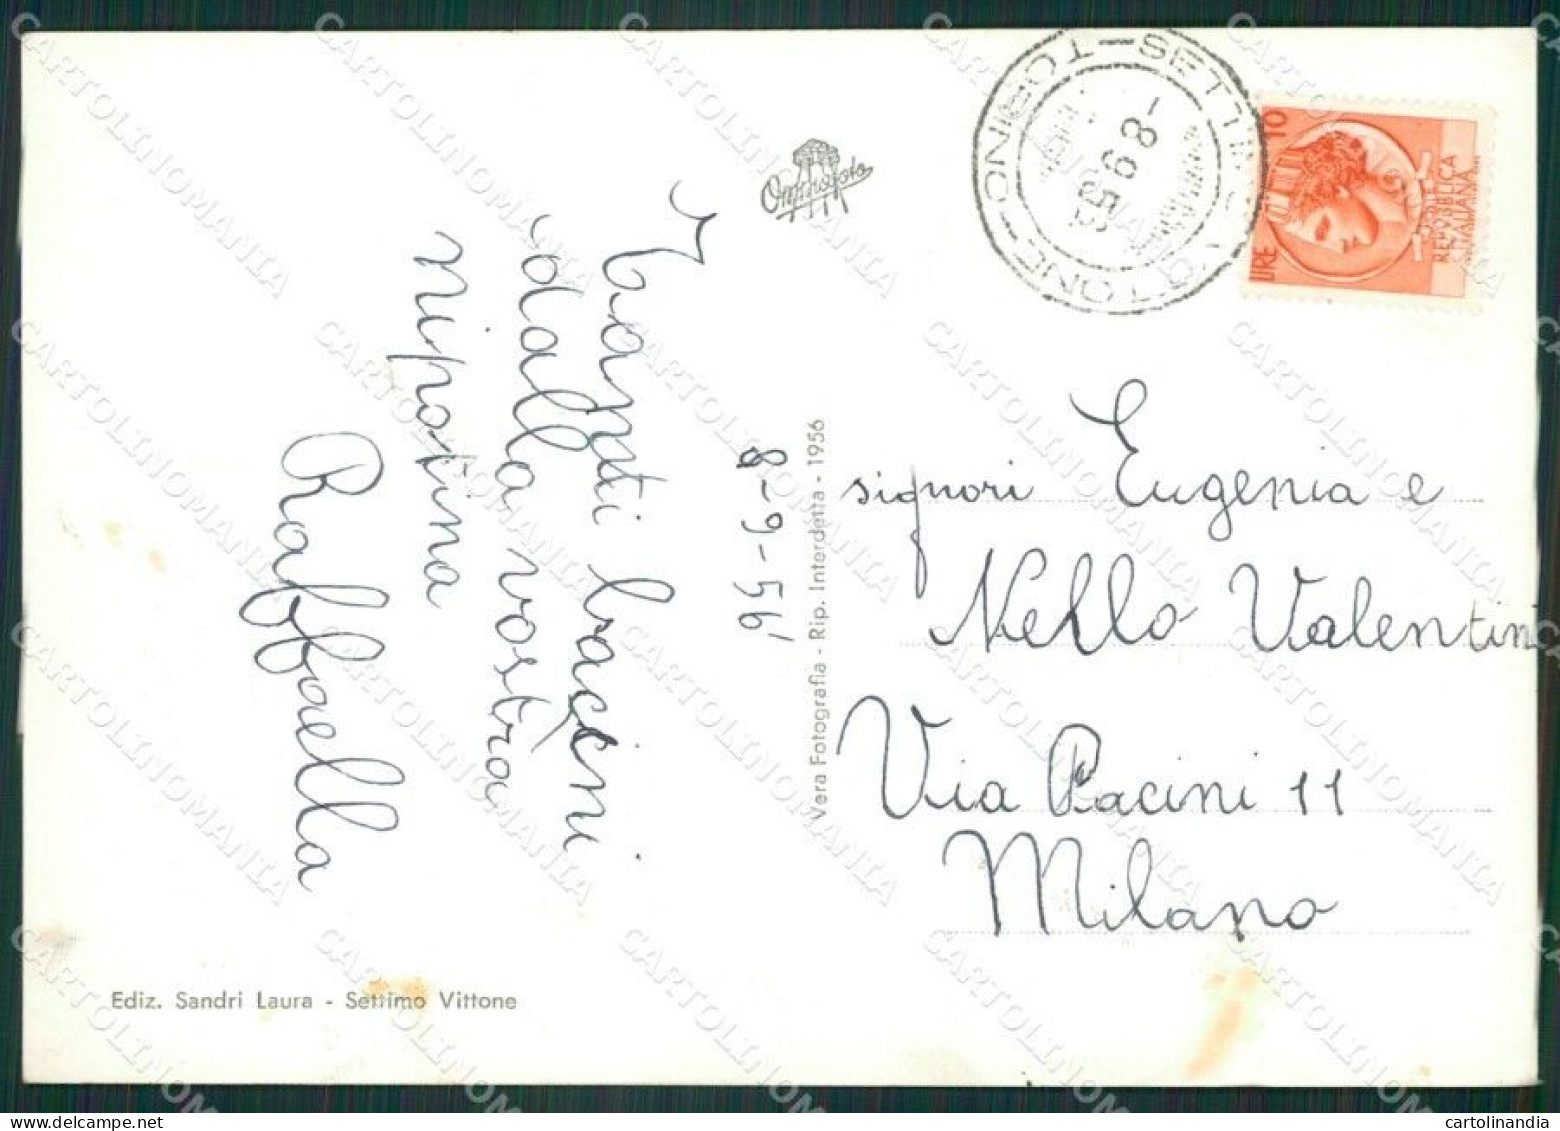 Tanti bacini
dalla vostra
nipotina
Raffaella
8-9-56'
Ediz. Sandri Laura - Settimo Vittone
Vera Fotografia - Rip. Interdetta - 1956
SETTIMO VITTONE - TORINO
-8 9 56
LIRE 10
POSTE
REPVBBLICA
ITALIANA
signori Eugenia e
Nello Valentini
Via Pacini 11
Milano
CARTOLINOMANIA
cartolinandia